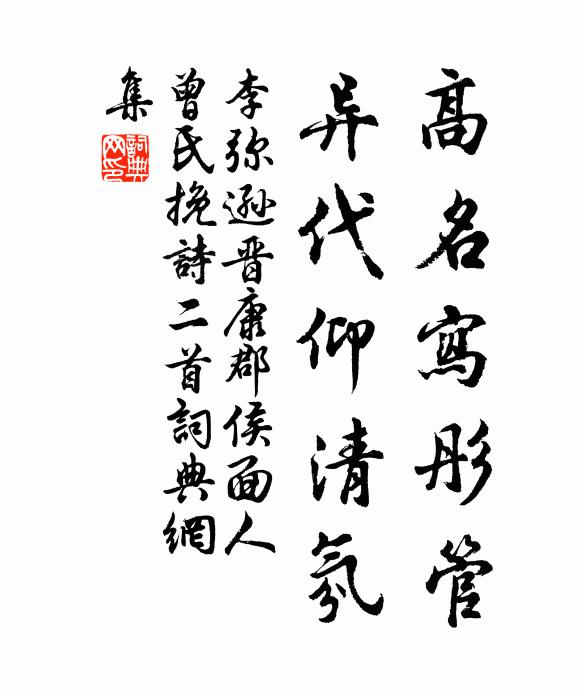 高名寫彤管
异代仰清氛
李弥遜晋康郡侯面人
曾氏挽詩二首詞典網
集
詞典网印